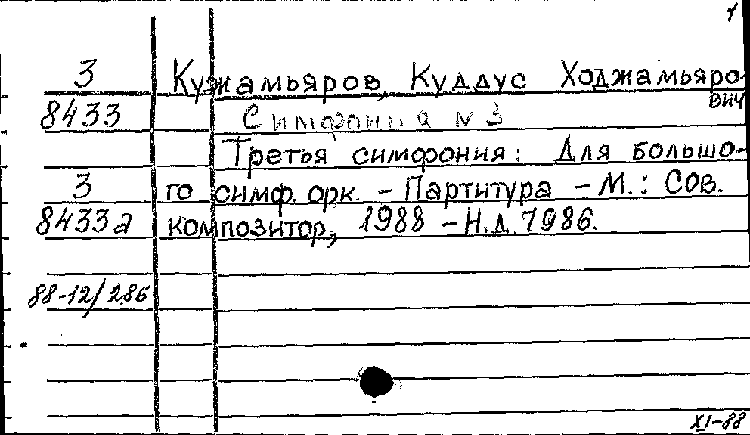 3 Кужамьяров, Куддус Ходжамьяро-
вич
8433 Симфония № 3
Третья симфония: Для большо-
3 го симф. орк. - Партитура - М.: Сов.
8433а композитор, 1988 - Н.д. 7986.
88-12/286
XI-88